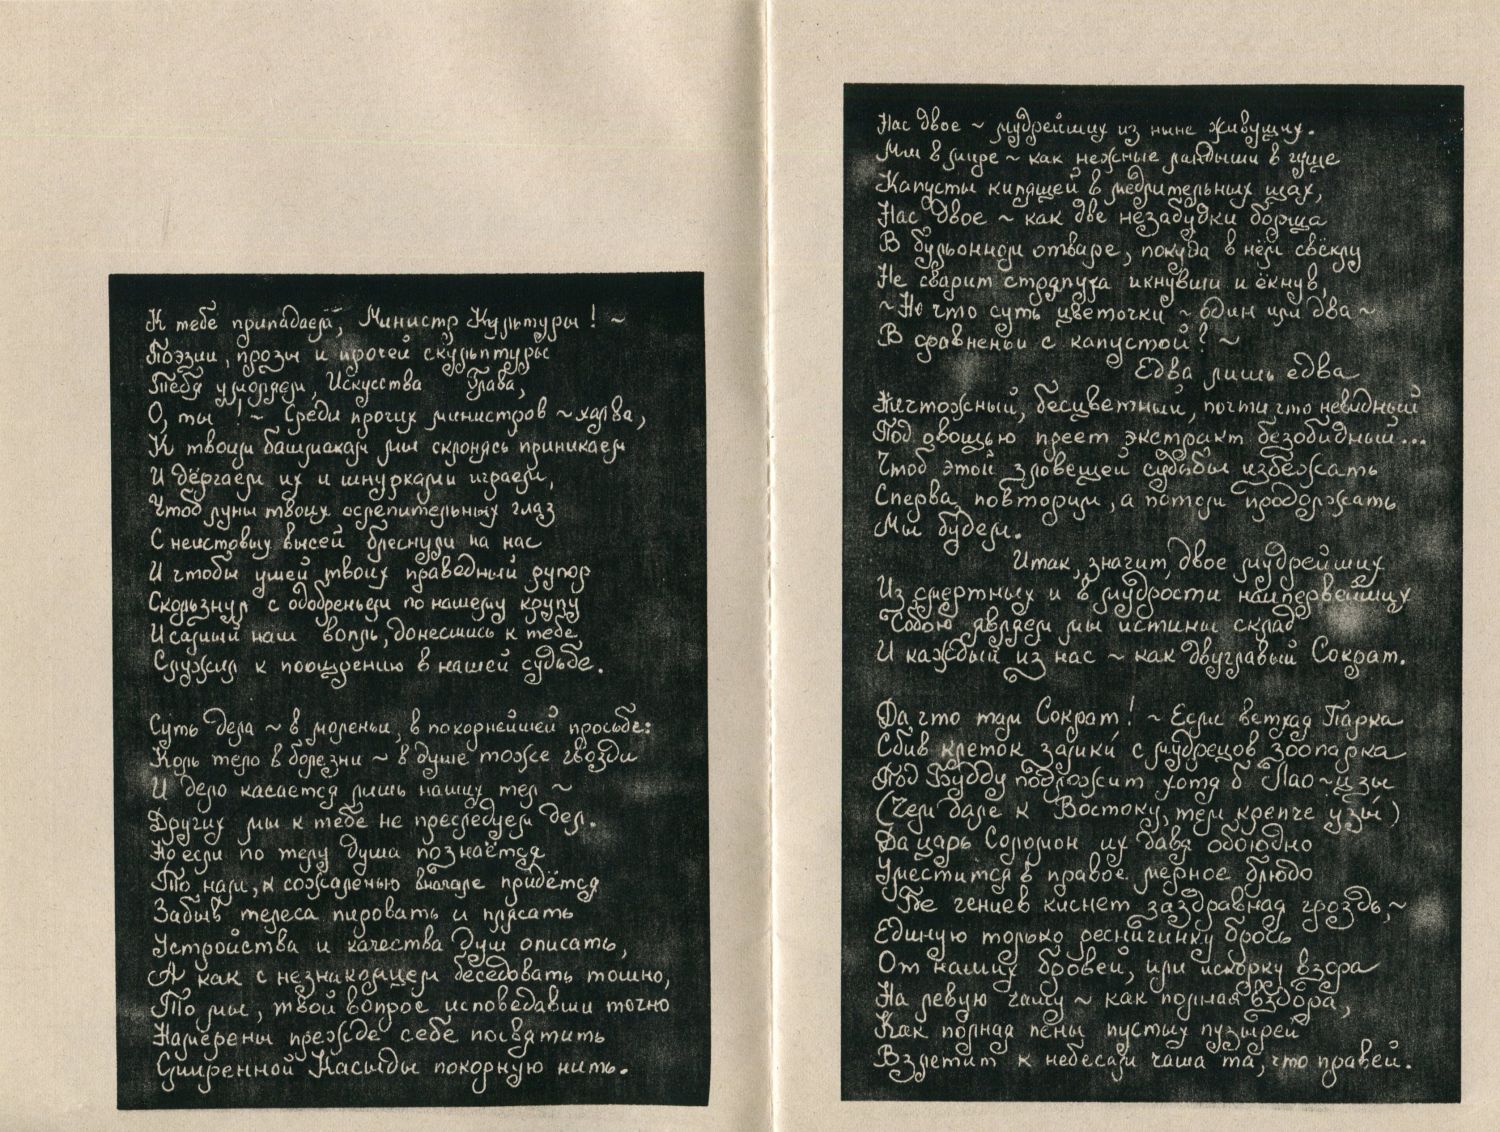 К тебе припадаем, Министр Культуры! ~
Поэзии, прозы и прочей скульптуры
Тебя умоляем, Искусства Глава,
О, ты ! ~ Среди прочих министров ~ халва,
К твоим башмакам мы склонясь приникаем
И дёргаем их и шнурками играем,
Чтоб луны твоих ослепительных глаз
С неистовых высей блеснули на нас
И чтобы ушей твоих праведный рупор
Скользнул с одобреньем по нашему крупу
И самый наш вопль, донесшись к тебе
Служил к поощрению в нашей судьбе.
Суть дела ~ в моленьи, в покорнейшей просьбе:
Коль тело в болезни ~ в душе тоже гвозди
И дело касается лишь наших тел ~
Других мы к тебе не преследуем дел.
Но если по телу душа познаётся
То нам, к сожаленью вначале придётся
Забыв телеса пировать и плясать
Устройства и качества душ описать,
А как с незнакомцем беседовать тошно,
То мы, твой вопрос исповедавши точно
Намерены прежде себе посвятить
Смиренной Касыды покорную нить.
Нас двое ~ мудрейших из ныне живущих.
Мы в мире ~ как нежные ландыши в гуще
Капусты кипящей в медлительных щах,
Нас двое ~ как две незабудки борща
В бульонном отваре, покуда в нём свёклу
Не сварит стряпуха икнувши и ёкнув,
~ Но что суть цветочки ~ один или два ~
В сравненьи с капустой? ~
Едва лишь едва
Ничтожный, бесцветный, почти что невидный
Под овощью преет экстракт безобидный...
Чтоб этой зловещей судьбы избежать
Сперва повторим, а потом продолжать
Мы будем.
Итак, значит, двое мудрейших
Из смертных и в мудрости наипервейших
Собою являем мы истины склад
И каждый из нас ~ как двуглавый Сократ.
Да что там Сократ! ~ Если ветхая Парка
Сбив клеток замки с мудрецов зоопарка
Под Будду подложит хотя б Лао~цзы
(Чем дале к Востоку, тем крепче узы)
Да царь Соломон их давя обоюдно
Уместится в правое мерное блюдо
Где гениев киснет заздравная гроздь, ~
Единую только ресничинку брось
От наших бровей, или искорку взора
На левую чашу ~ как полная вздора,
Как полная пены пустых пузырей
Взлетит к небесам чаша та, что правей.